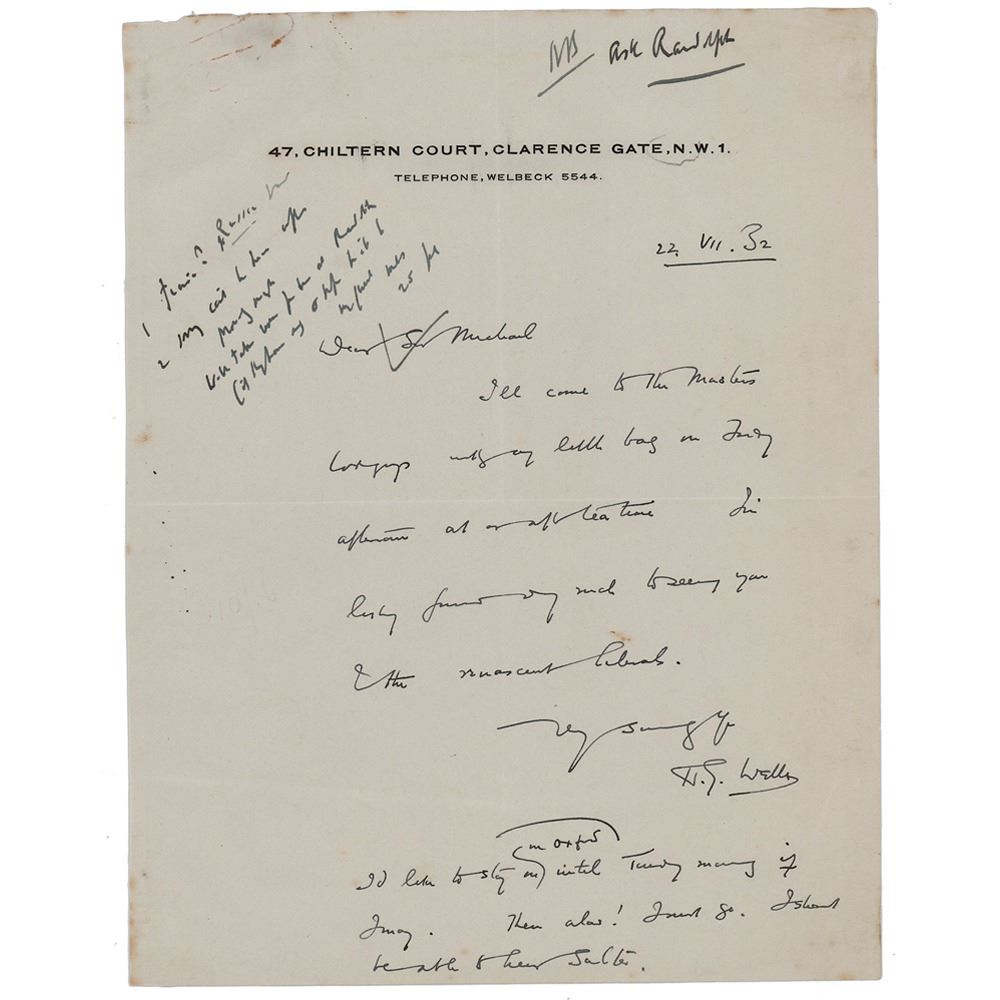 NB Ask Randolph
47, CHILTERN COURT, CLARENCE GATE, N.W.1.
TELEPHONE, WELBECK 5544.
22. VII. 32
1
2 my
Dear Sir Michael
I'll come to the Masters
Lodgings with my little bag on Friday
afternoon at or after tea time I'm
looking forward very much to seeing you
& the renascent liberals.
Very sincerely yrs
H.G. Wells
in Oxford
I'd like to stay on until Tuesday morning if
I may. Then alas! I must go. I shant
be able to hear Salter.